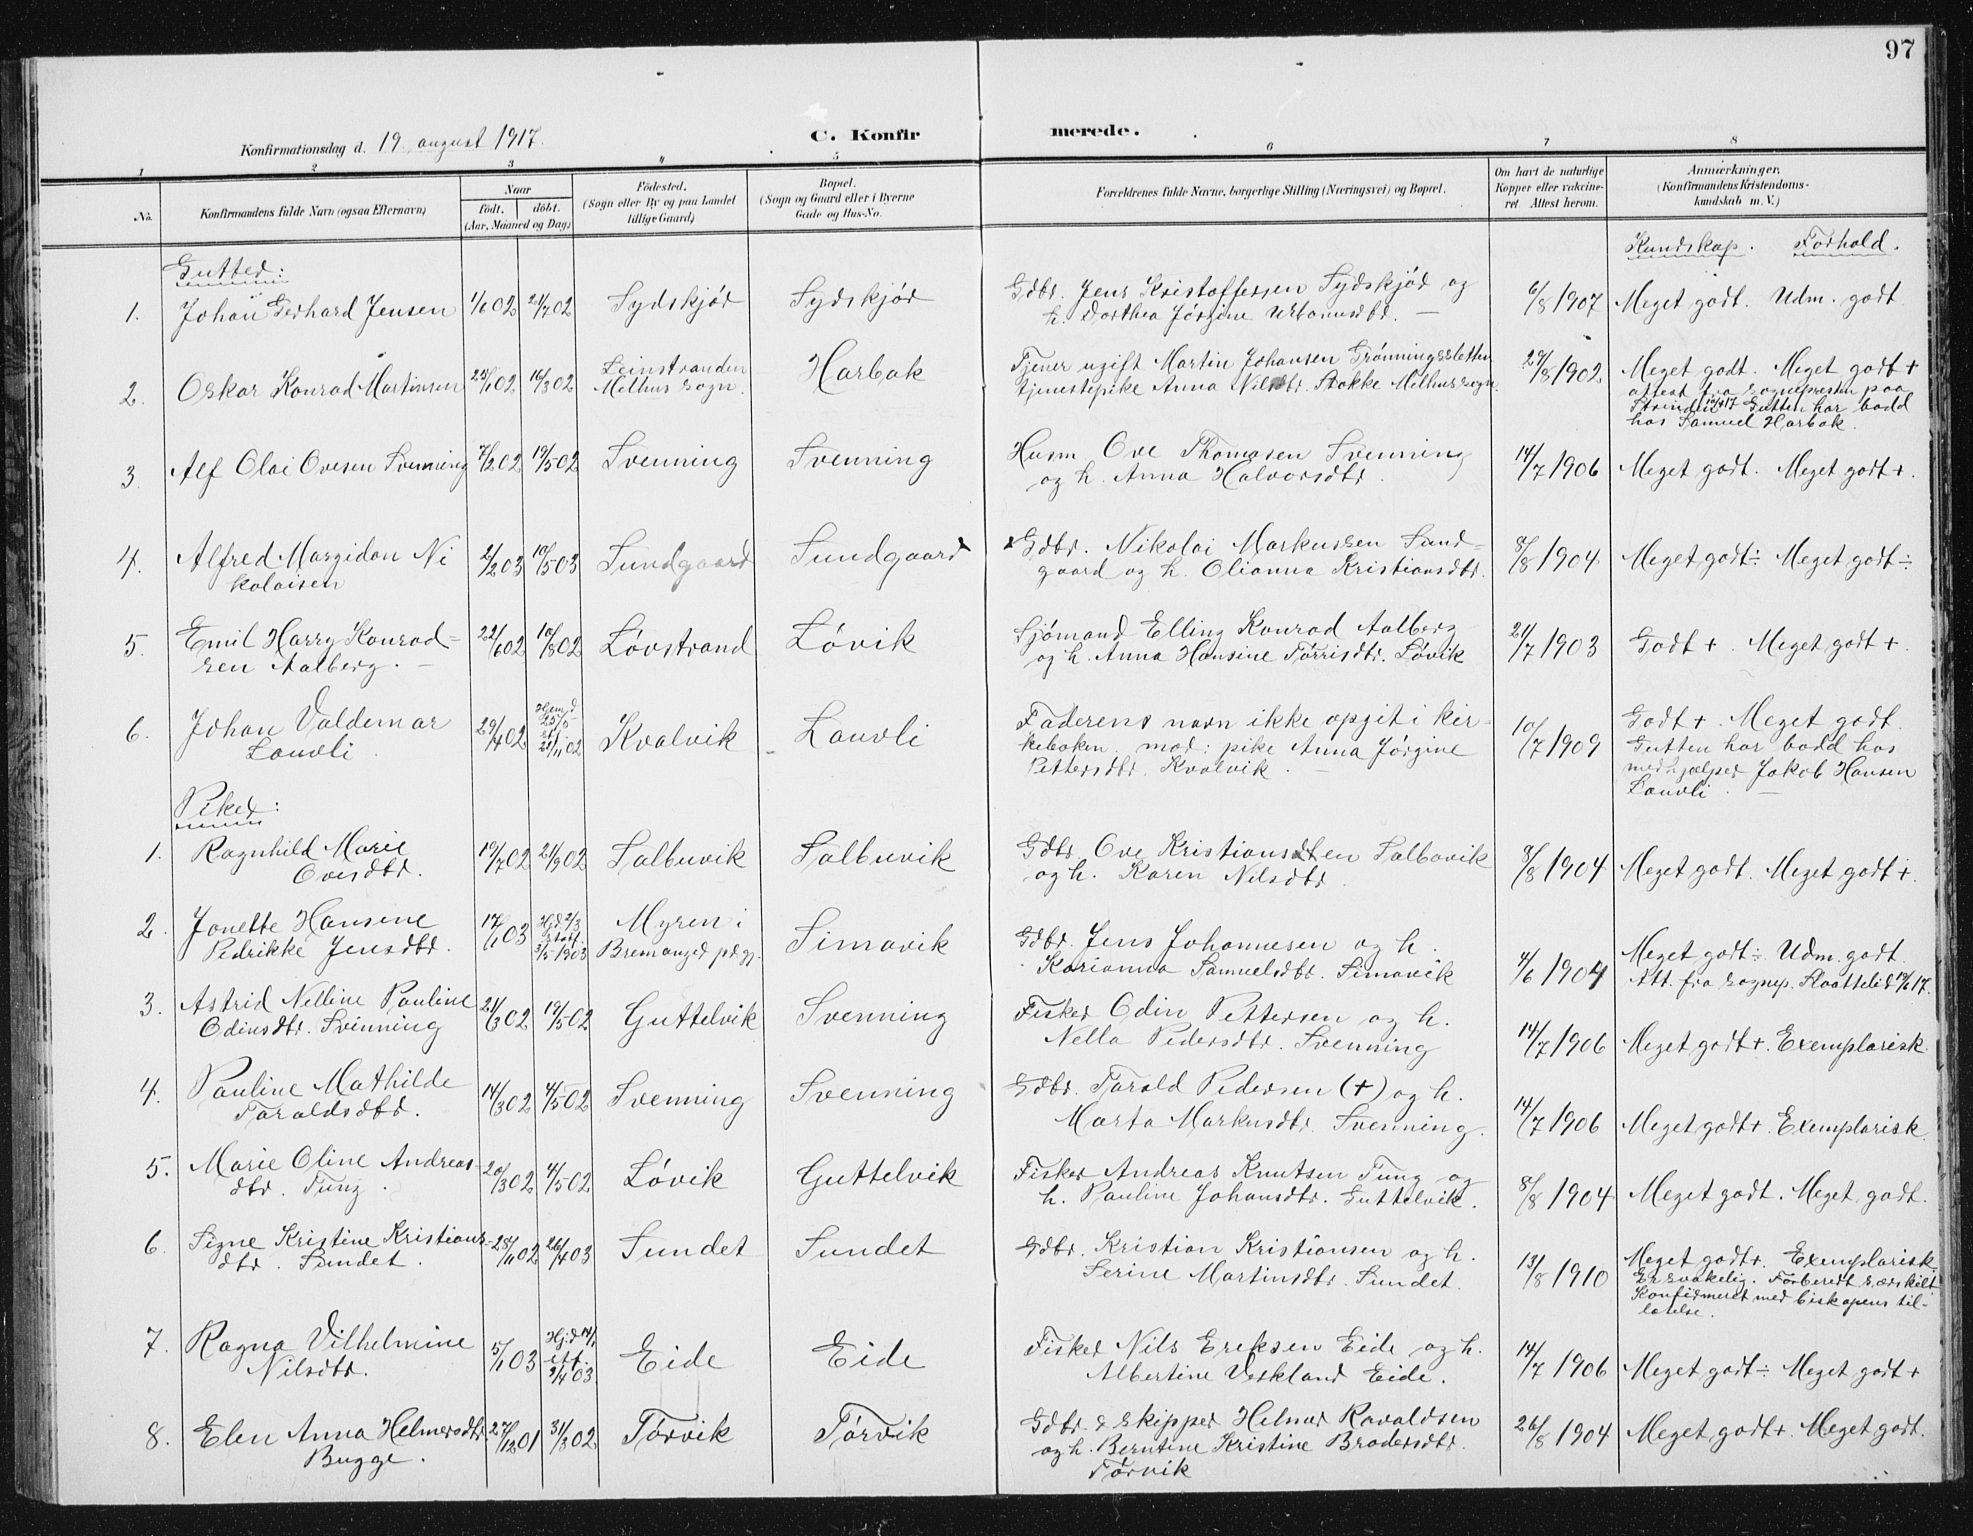 97
Konfirmationsdag d. 19. august 1917.
C. Konfirmerede.
1 2 3 4 5 6 7 8
No.
Konfirmandens fulde Navn (ogsaa Efternavn)
Naar
Födt. döbt.
(Aar, Maaned og Dag)
Födested.
(Sogn eller By og paa Landet
tillige Gaard)
Bopæl.
(Sogn og Gaard eller i Byerne
Gade og Hus-No.
Forældrenes fulde Navne, borgerlige Stilling (Næringsvei) og Bopæl.
Om havt de naturlige
Kopper eller vakcine-
ret Attest herom.
Anmærkninger.
(Konfirmandens Kristendoms-
kundskab m. V.)
Kundskap. Forhold.
Gutter:
1. Johan Gerhard Jensen 1/6 02 2/7 02 Sydskjør Sydskjør
Gdbr. Jens Kristoffersen Sydskjør og
h. Dorthea Jørgine Urbanusdtr. —
6/8 1907 Meget godt. Udm. godt.
2. Oskar Konrad Martinsen 25/1 02 16/3 02
Leinstranden
Melhus sogn.
Harbak
Tjener ugift Martin Johansen Grønningssletten
tjenestepike Anna Nilsdtr. Stokke Melhus sogn.
29/8 1902 Meget godt. Meget godt +
attest fra sognepresten paa
Strinden Gutten har bodd
hos Samuel Harbak.
3. Alf Olai Ovesen Svenning 7/2 02 19/5 02 Svenning Svenning
Husm Ove Thomasen Svenning
og h. Anna Halvorsdtr.
14/7 1906 Meget godt. Meget godt +.
4. Alfred Margidon Ni
kolaisen
2/2 03 10/5 03 Sundgaard Sundgaard
Gdbr. Nikolai Markussen Sund=
gaard og h. Olianna Kristiansdtr.
8/8 1904 Meget godt ÷ Meget godt ÷
5. Emil Harry Konrad=
sen Aalberg. —
22/6 02 10/8 02 Løvstrand Løvik
Sjömand Elling Konrad Aalberg
og h. Anna Hansine Törrisdtr. Løvik
21/7 1903 Godt +. Meget godt +.
6. Johan Valdemar
Lauvli.
29/4 02
Hjemd
25/5
st.f.
23/11 02
Kvalvik Lauvli
Faderens navn ikke opgit i kir-
keboken. mod: pike Anna Jørgine
Pettersdtr. Kvalvik. —
10/7 1909 Godt +. Meget godt.
Gutten har bodd hos
medhjælper Jakob Hansen
Lauvli. —
Piker:
1. Ragnhild Marie
Ovesdtr.
19/7 02 21/9 02 Salbuvik Salbuvik
Gdbr Ove Kristiansen Salbovik
og h. Karen Nilsdtr.
8/8 1904 Meget godt. Meget godt +.
2. Jonette Hansine
Pedrikke Jensdtr.
17/1 03
Hjd. 2/3
Stadf.
3/5 1903
Myren i
Bremanger prgj.
Simavik
Gdbr. Jens Johannesen og h.
Karianna Samuelsdtr. Simavik
4/6 1904 Meget godt ÷ Udm. godt.
Att. fra sognep. Slaattelid
3. Astrid Nelline Pauline
Odinsdtr. Svenning
21/3 02 19/5 02 Guttelvik Svenning
Fisker Odin Pettersen og h.
Nella Pedersdtr. Svenning
14/7 1906 Meget godt +. Exemplarisk
4. Pauline Mathilde
Taraldsdtr.
14/3 02 4/5 02 Svenning Svenning
Gdbr. Tarald Pedersen (+) og h.
Marta Markusdtr. Svenning.
14/7 1906 Meget godt +. Exemplarisk
5. Marie Oline Andreas-
dtr. Tung.
20/3 02 4/5 02 Løvik Guttelvik
Fisker Andreas Knutsen Tung og
h. Pauline Johansdtr. Guttelvik.
8/8 1904 Meget godt. Meget godt.
6. Signe Kristine Kristians-
dtr. Sundet.
28/11 02 26/4 03 Sundet Sundet
Gdbr. Kristian Kristiansen og h.
Serine Martinsdtr. Sundet.
13/8 1910 Meget godt +. Exemplarisk.
Er svakelig. Forberedt særskilt
Konfirmeret med biskopens til-
latelse.
7. Ragna Vilhelmine
Nilsdtr.
5/1 03
Hjd 14/1
st.f.
3/4 03
Eide Eide
Fisker Nils Eriksen Eide og h.
Albertine Veskland Eide.
14/7 1906 Meget godt ÷ Meget godt +
8. Elen Anna Helmersdtr.
Bugge.
27/12 01 31/3 02 Tørvik Tørvik
Gdbr & skipper Helmer Ravaldsen
og h. Berntine Kristine Brodersdtr.
Tørvik
26/8 1904 Meget godt +. Meget godt.